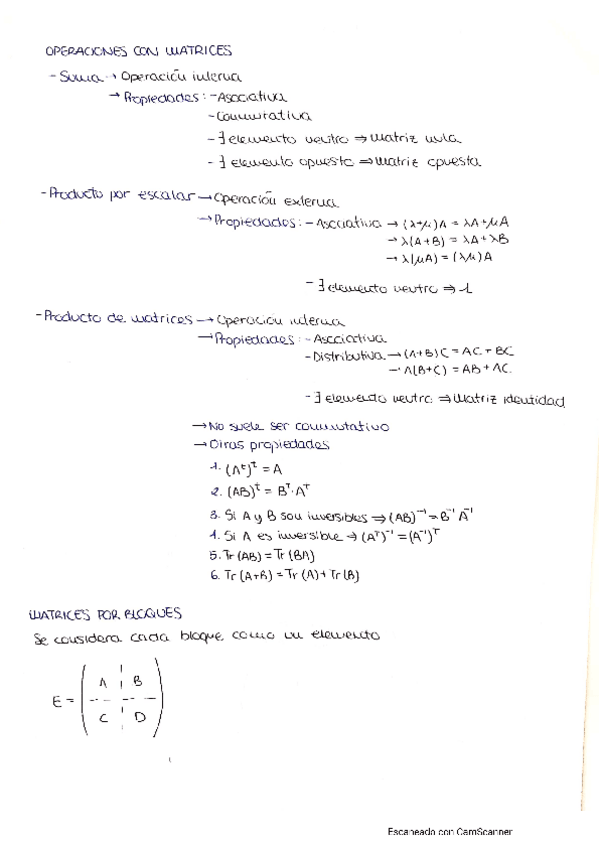 OPERACIONES CON MATRICES
- Suma → Operación interna
→ Propiedades: - Asociativa
- Conmutativa
- ∃ elemento neutro ⇒ Matriz nula
- ∃ elemento opuesto ⇒ Matriz opuesta
- Producto por escalar → Operación externa
→ Propiedades: - Asociativa → (λ+μ)A = λA+μA
→ λ(A+B) = λA+λB
→ λ(μA) = (λμ)A
- ∃ elemento neutro ⇒ 1
- Producto de matrices → Operación interna
→ Propiedades: - Asociativa
- Distributiva → (A+B)C = AC + BC
→ A(B+C) = AB + AC.
- ∃ elemento neutro ⇒ Matriz identidad
→ No suele ser conmutativo
→ Otras propiedades
1. (Aᵗ)ᵗ = A
2. (AB)ᵗ = Bᵀ·Aᵀ
3. Si A y B son inversibles ⇒ (AB)⁻¹ = B⁻¹ A⁻¹
4. Si A es inversible ⇒ (Aᵀ)⁻¹ = (A⁻¹)ᵀ
5. Tr (AB) = Tr (BA)
6. Tr (A+B) = Tr (A) + Tr (B)
MATRICES POR BLOQUES
Se considera cada bloque como un elemento
A B
E =
C D
Escaneado con CamScanner